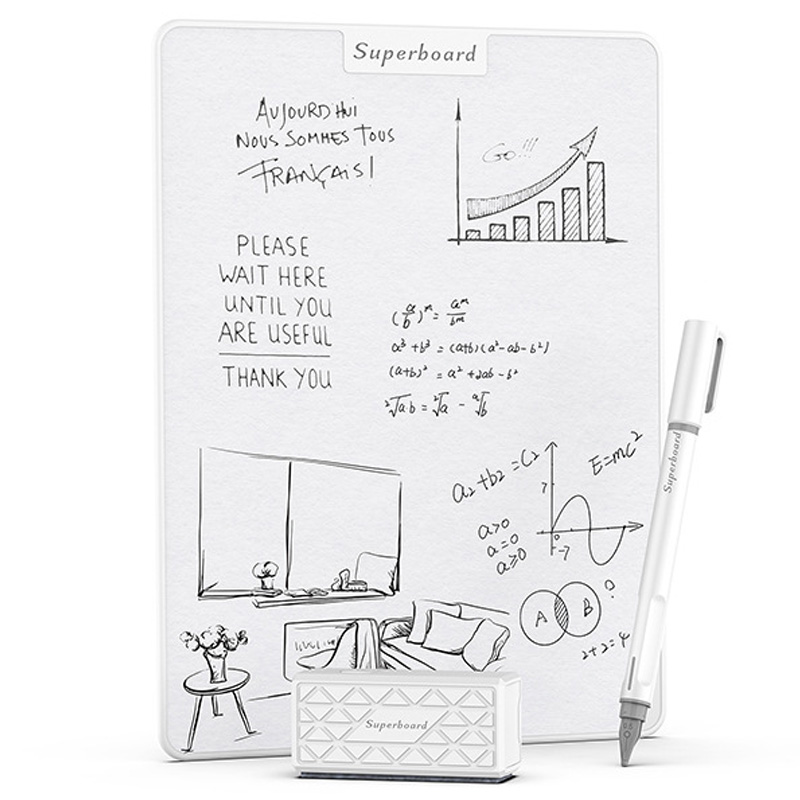 Superboard
AUJOURD'HUI
NOUS SOMMES TOUS
FRANÇAIS!
GO!!!
PLEASE
WAIT HERE
UNTIL YOU
ARE USEFUL
THANK YOU
(a/b)ᵐ = aᵐ/bᵐ
a³+b³ = (a+b)(a²-ab-b²)
(a+b)² = a²+2ab-b²
²√a·b = ²√a - ᵃ√b
a2+b2=C2
E=mc²
a>0
a=0
a≥0
7
0
-7
A B ?
2+2=4
Superboard
Superboard